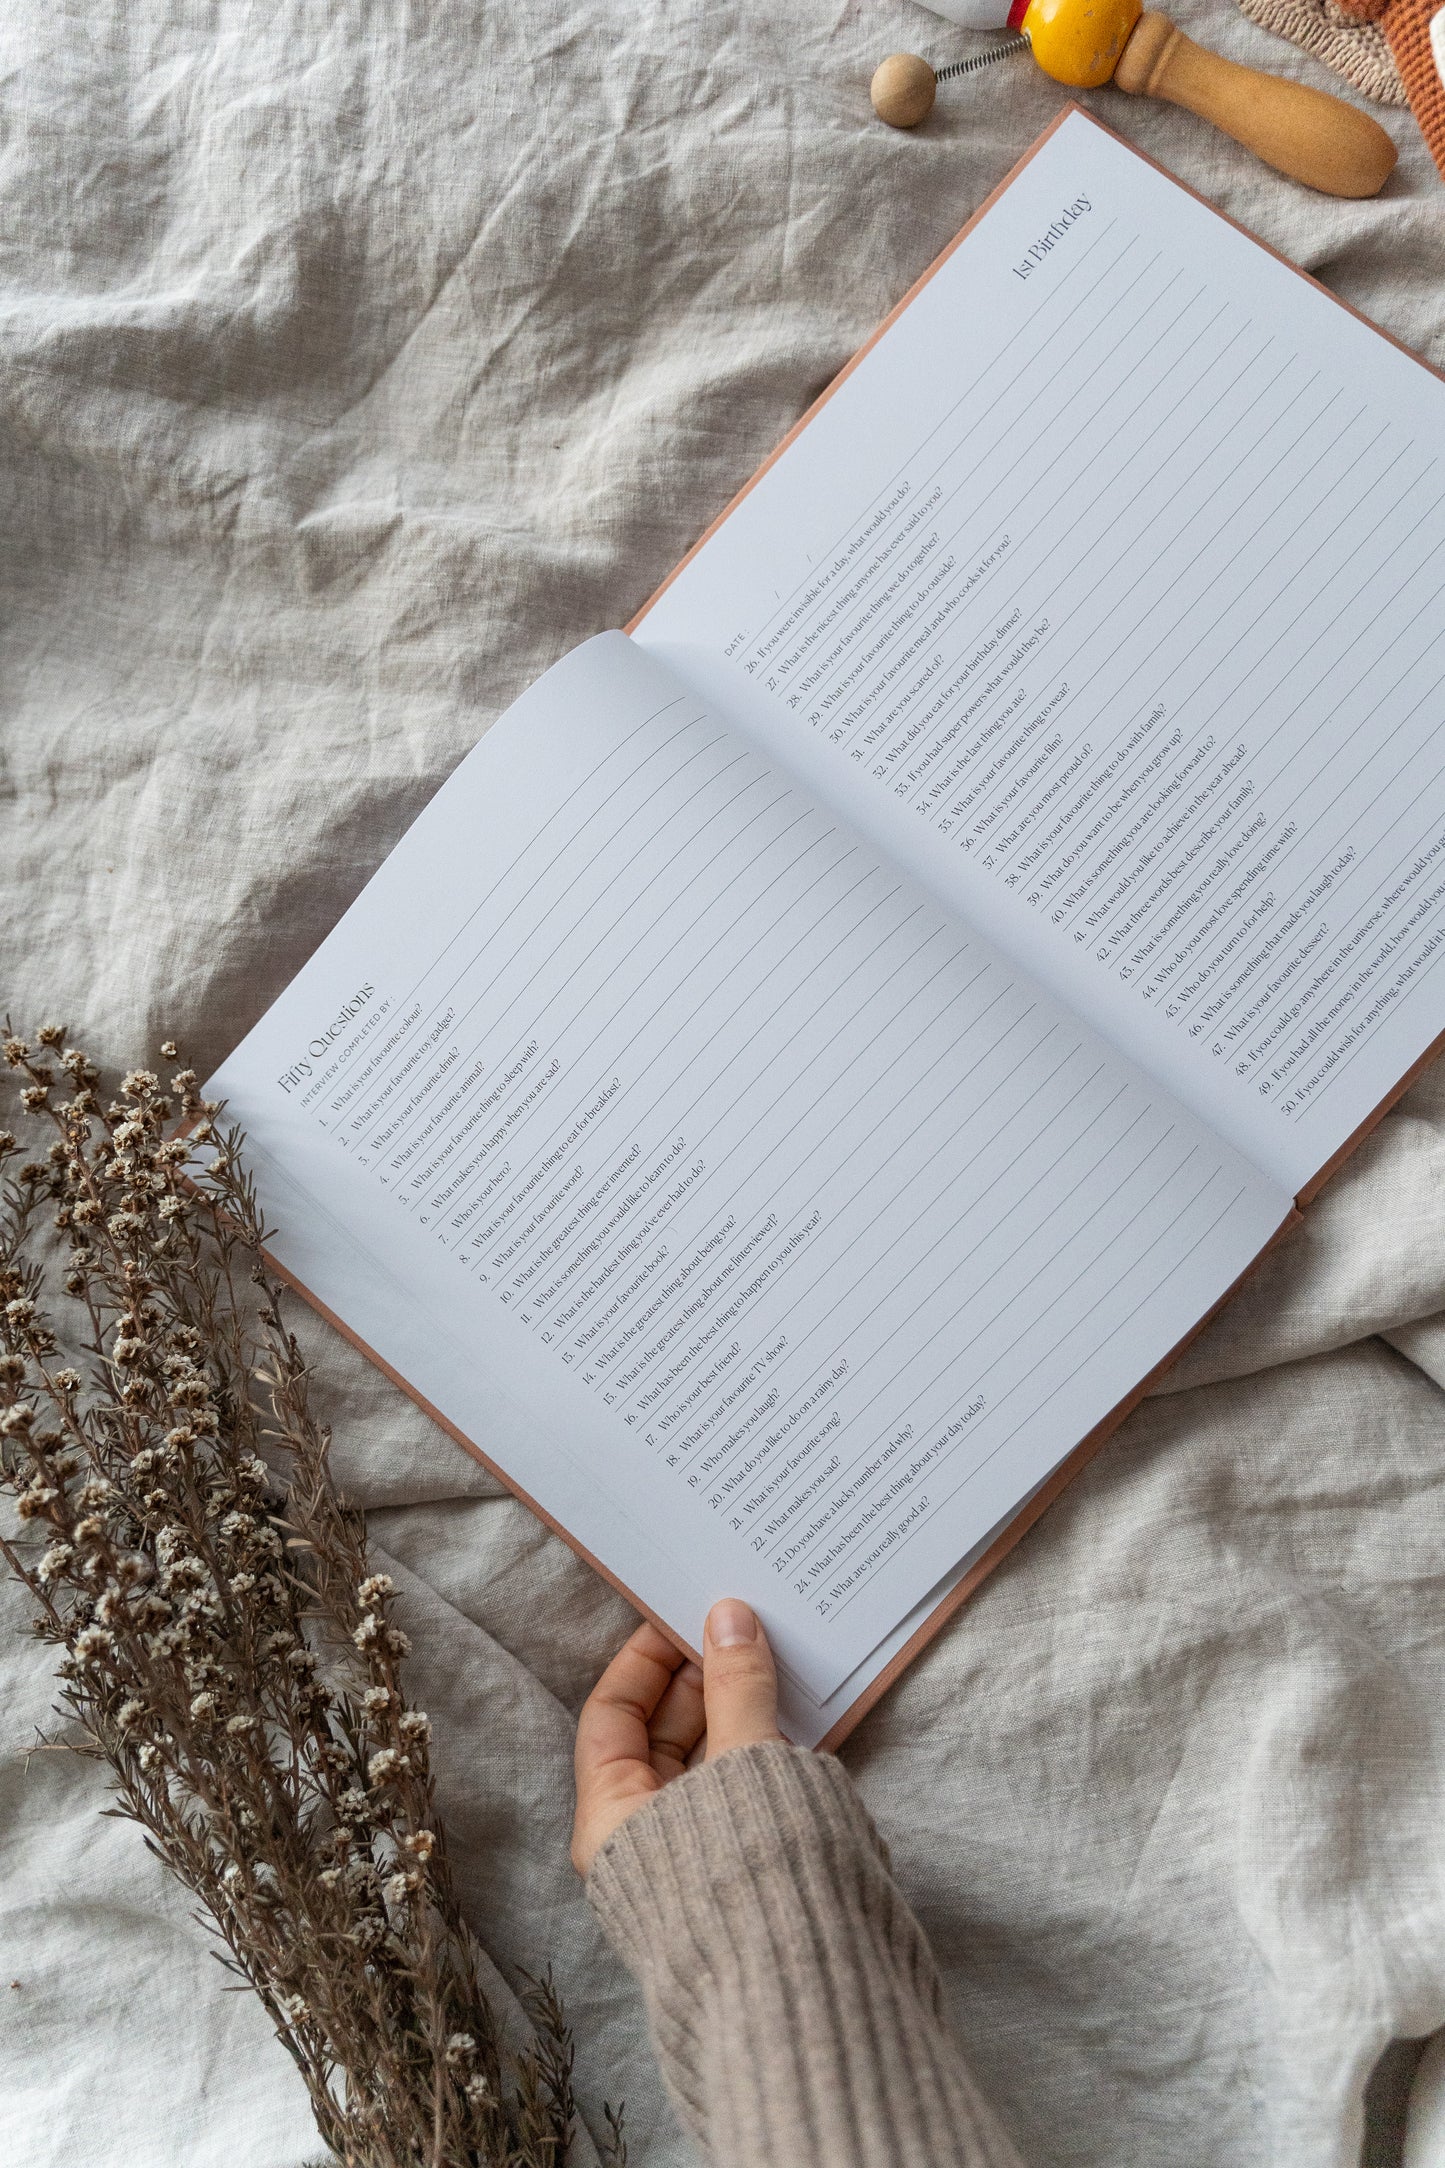 Fifty Questions
INTERVIEW COMPLETED BY :
1. What is your favourite colour?
2. What is your favourite toy/gadget?
3. What is your favourite drink?
4. What is your favourite animal?
5. What is your favourite thing to sleep with?
6. What makes you happy when you are sad?
7. Who is your hero?
8. What is your favourite thing to eat for breakfast?
9. What is your favourite word?
10. What is the greatest thing ever invented?
11. What is something you would like to learn to do?
12. What is the hardest thing you've ever had to do?
13. What is your favourite book?
14. What is the greatest thing about being you?
15. What is the greatest thing about me [interviewer]?
16. What has been the best thing to happen to you this year?
17. Who is your best friend?
18. What is your favourite TV show?
19. Who makes you laugh?
20. What do you like to do on a rainy day?
21. What is your favourite song?
22. What makes you sad?
23. Do you have a lucky number and why?
24. What has been the best thing about your day today?
25. What are you really good at?
1st Birthday
DATE : / /
26. If you were invisible for a day, what would you do?
27. What is the nicest thing anyone has ever said to you?
28. What is your favourite thing we do together?
29. What is your favourite thing to do outside?
30. What is your favourite meal and who cooks it for you?
31. What are you scared of?
32. What did you eat for your birthday dinner?
33. If you had super powers what would they be?
34. What is the last thing you ate?
35. What is your favourite thing to wear?
36. What is your favourite film?
37. What are you most proud of?
38. What is your favourite thing to do with family?
39. What do you want to be when you grow up?
40. What is something you are looking forward to?
41. What would you like to achieve in the year ahead?
42. What three words best describe your family?
43. What is something you really love doing?
44. Who do you most love spending time with?
45. Who do you turn to for help?
46. What is something that made you laugh today?
47. What is your favourite dessert?
48. If you could go anywhere in the universe, where would you
49. If you had all the money in the world, how would you
50. If you could wish for anything, what would it